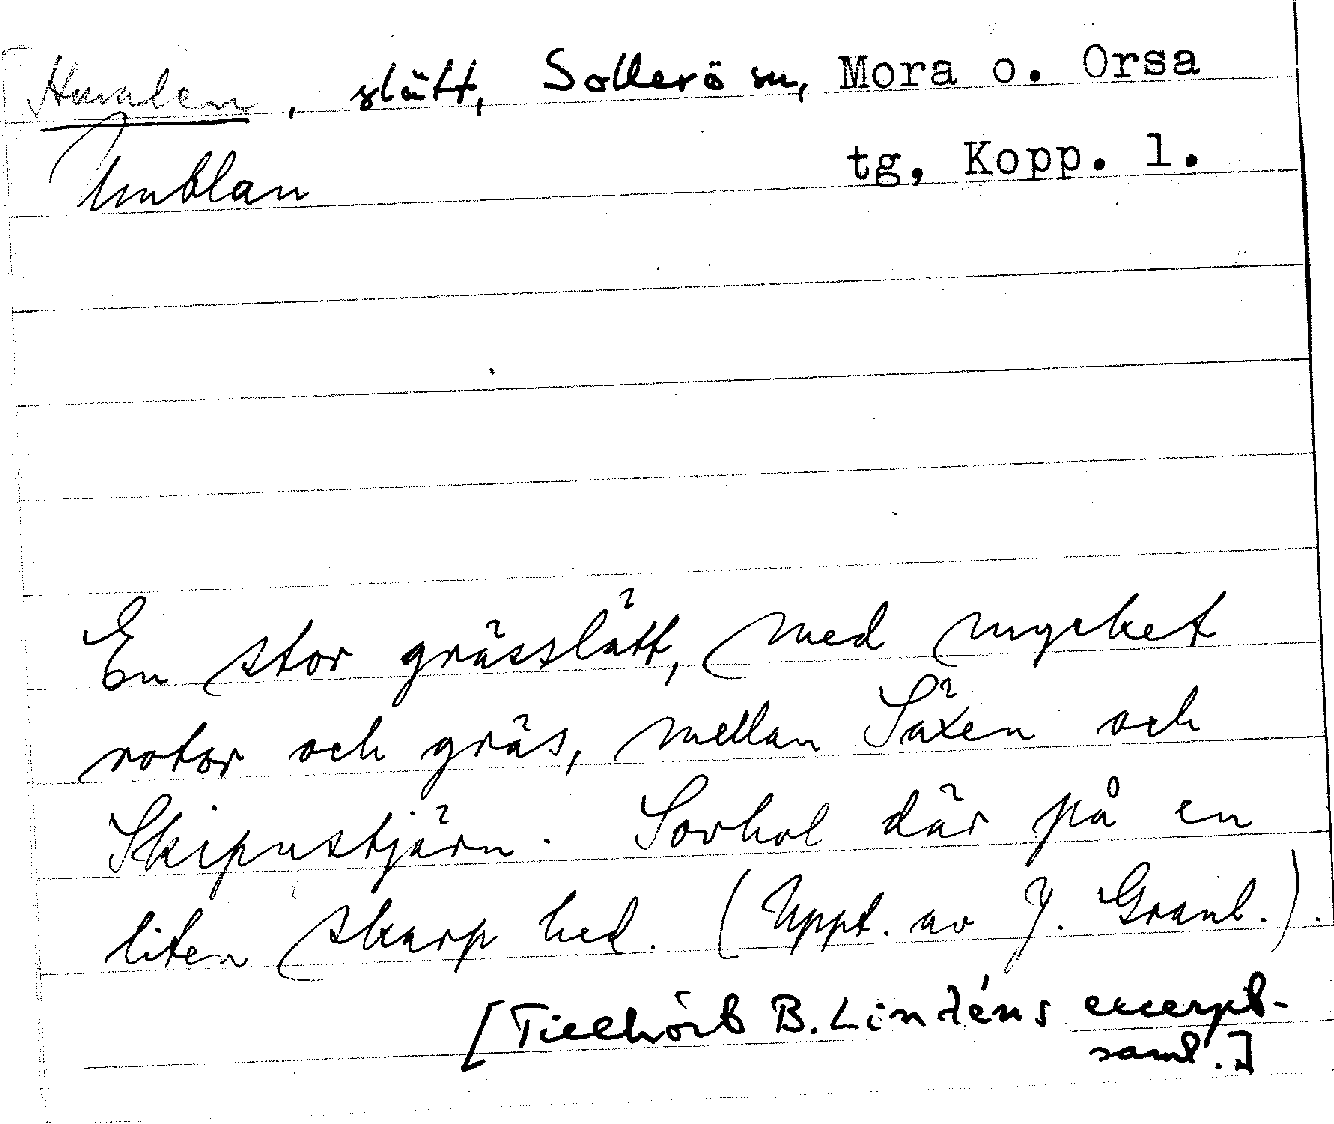 [Humlen, slått, Sollerö sn, Mora o. Orsa
Umblan tg, Kopp. l.
En stor grässlått, med mycket
rotor och gräs, mellan Säxen och
Skipustjärn. Sovhol där på en
liten skarp hed. (Uppt. av J. Granl.).
[Tillhört B. Lindéns excerpt-
saml.]